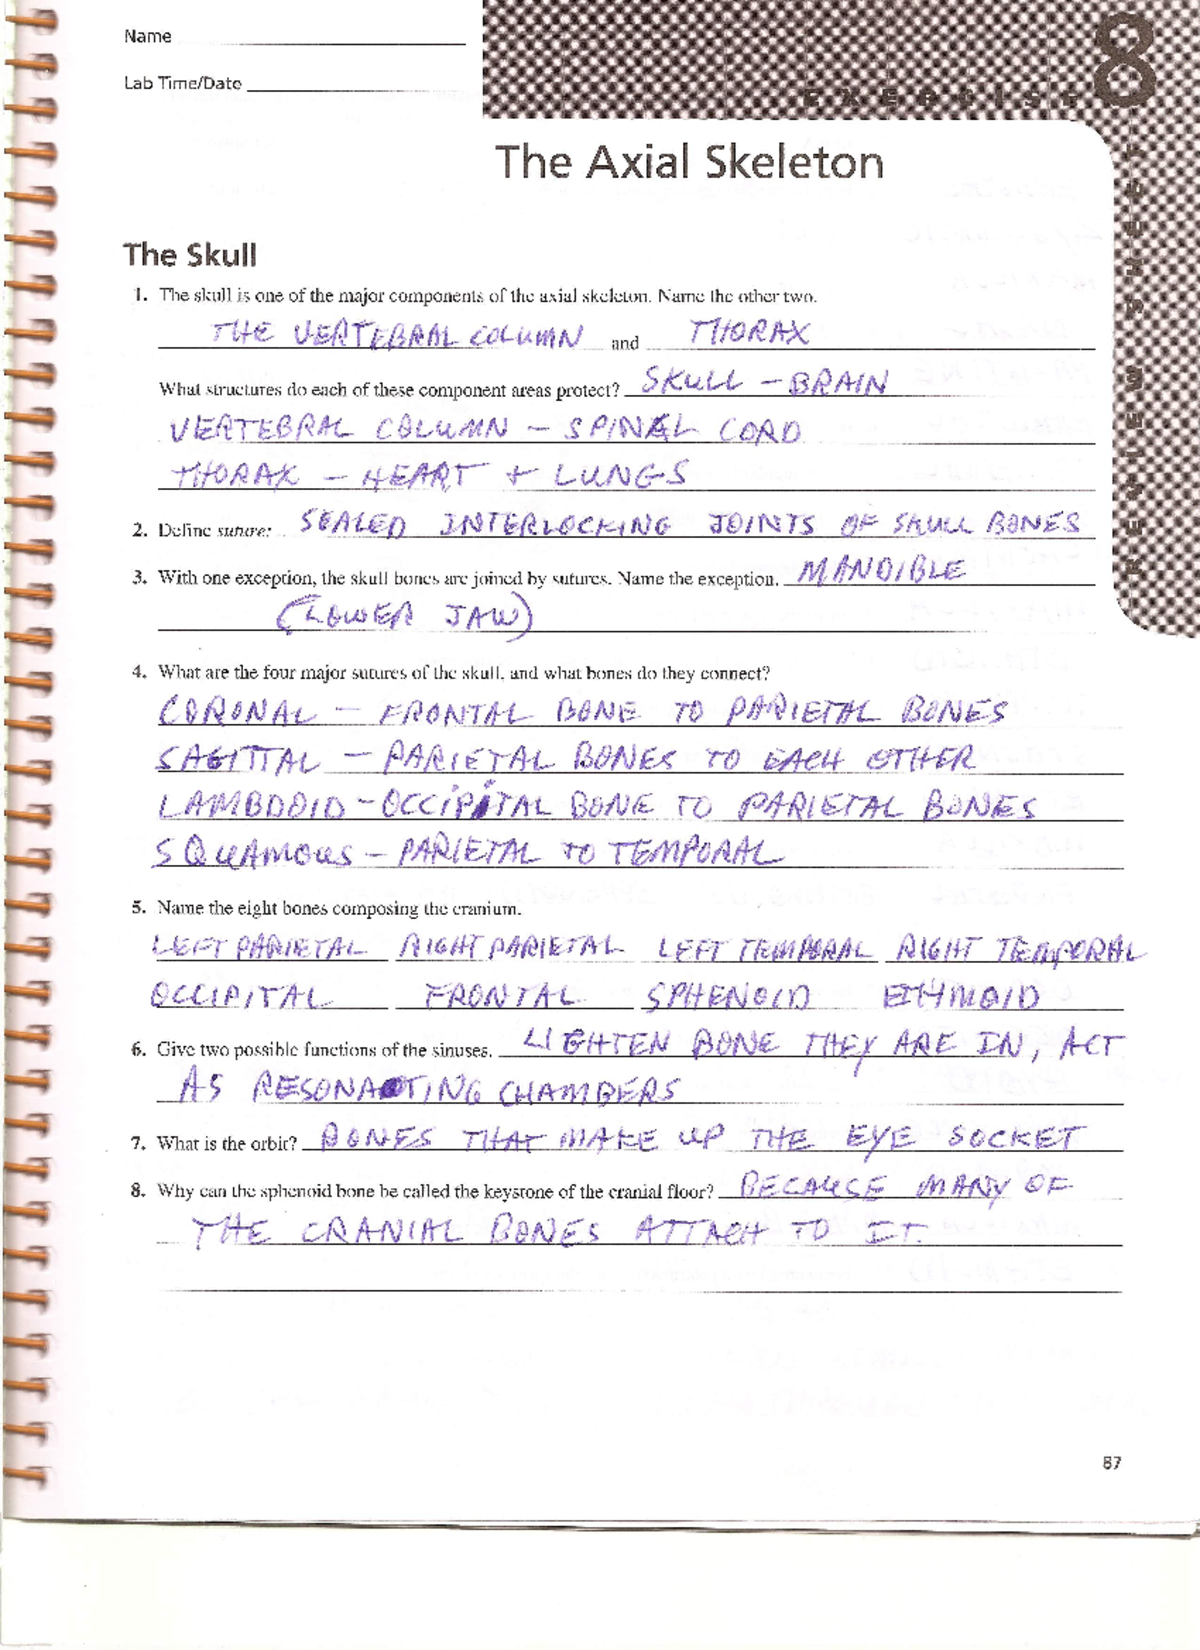 Name
Lab Time/Date
EXERCISE 8
REVIEW SHEET
The Axial Skeleton
The Skull
1. The skull is one of the major components of the axial skeleton. Name the other two.
THE VERTEBRAL COLUMN and THORAX
What structures do each of these component areas protect? SKULL - BRAIN
VERTEBRAL COLUMN - SPINAL CORD
THORAX - HEART + LUNGS
2. Define suture: SEALED INTERLOCKING JOINTS OF SKULL BONES
3. With one exception, the skull bones are joined by sutures. Name the exception. MANDIBLE
(LOWER JAW)
4. What are the four major sutures of the skull, and what bones do they connect?
CORONAL - FRONTAL BONE TO PARIETAL BONES
SAGITTAL - PARIETAL BONES TO EACH OTHER
LAMBDOID - OCCIPITAL BONE TO PARIETAL BONES
SQUAMOUS - PARIETAL TO TEMPORAL
5. Name the eight bones composing the cranium.
LEFT PARIETAL RIGHT PARIETAL LEFT TEMPORAL RIGHT TEMPORAL
OCCIPITAL FRONTAL SPHENOID ETHMOID
6. Give two possible functions of the sinuses. LIGHTEN BONE THEY ARE IN, ACT
AS RESONATING CHAMBERS
7. What is the orbit? BONES THAT MAKE UP THE EYE SOCKET
8. Why can the sphenoid bone be called the keystone of the cranial floor? BECAUSE MANY OF
THE CRANIAL BONES ATTACH TO IT.
87